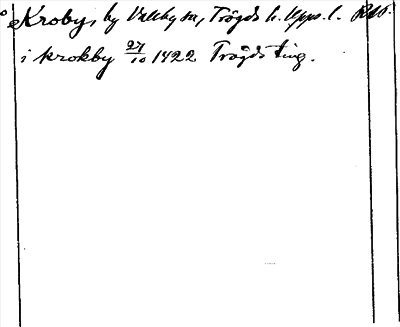 Kroby, by Vallby sn, Trögds h. Upps. l. RAP.
i krokby 27/10 1422 Trögds ting.